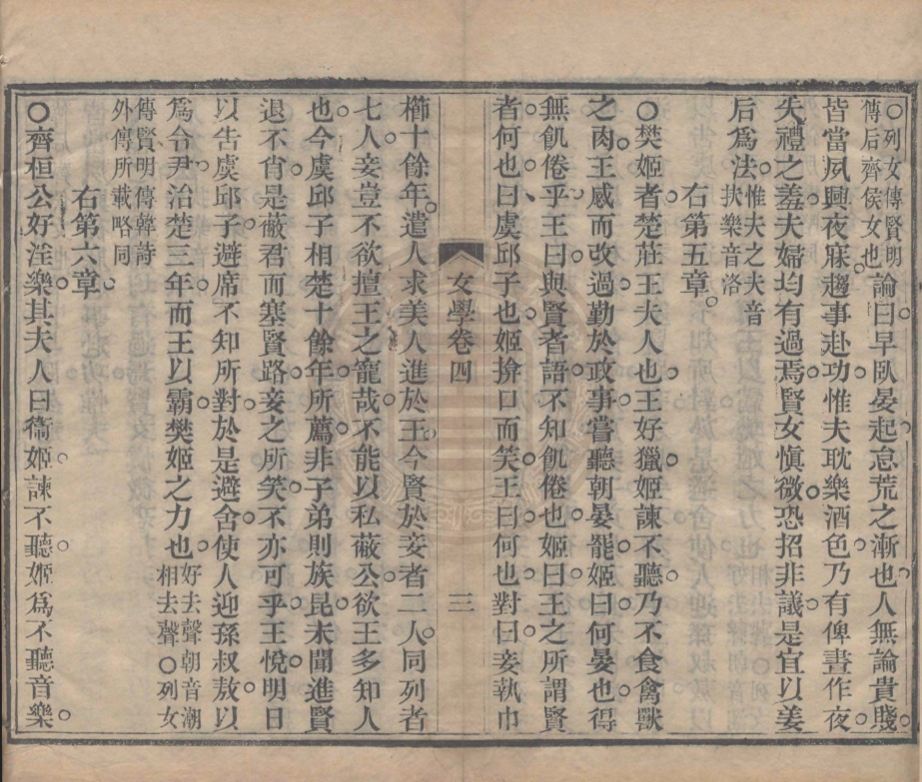 ○列女傳賢明傳后齊侯女也論曰早臥晏起怠荒之漸也人無論貴賤
皆當夙興夜寐趨事赴功惟夫耽樂酒色乃有俾晝作夜
失禮之羞夫婦均有過焉賢女愼微恐招非議是宜以姜
后爲法惟夫之夫音扶樂音洛
右第五章
○樊姬者楚莊王夫人也王好獵姬諫不聽乃不食禽獸
之肉王感而改過勤於政事嘗聽朝晏罷姬曰何晏也得
無飢倦乎王曰與賢者語不知飢倦也姬曰王之所謂賢
者何也曰虞邱子也姬揜口而笑王曰何也對曰妾執巾
女學卷四 三
櫛十餘年遣人求美人進於王今賢於妾者二人同列者
七人妾豈不欲擅王之寵哉不能以私蔽公欲王多知人
也今虞邱子相楚十餘年所薦非子弟則族昆未聞進賢
退不肖是蔽君而塞賢路妾之所笑不亦可乎王悅明日
以告虞邱子避席不知所對於是避舍使人迎孫叔敖以
爲令尹治楚三年而王以霸樊姬之力也好去聲朝音潮相去聲○列女
傳賢明傳韓詩外傳所載略同
右第六章
○齊桓公好淫樂其夫人曰衞姬諫不聽姬爲不聽音樂